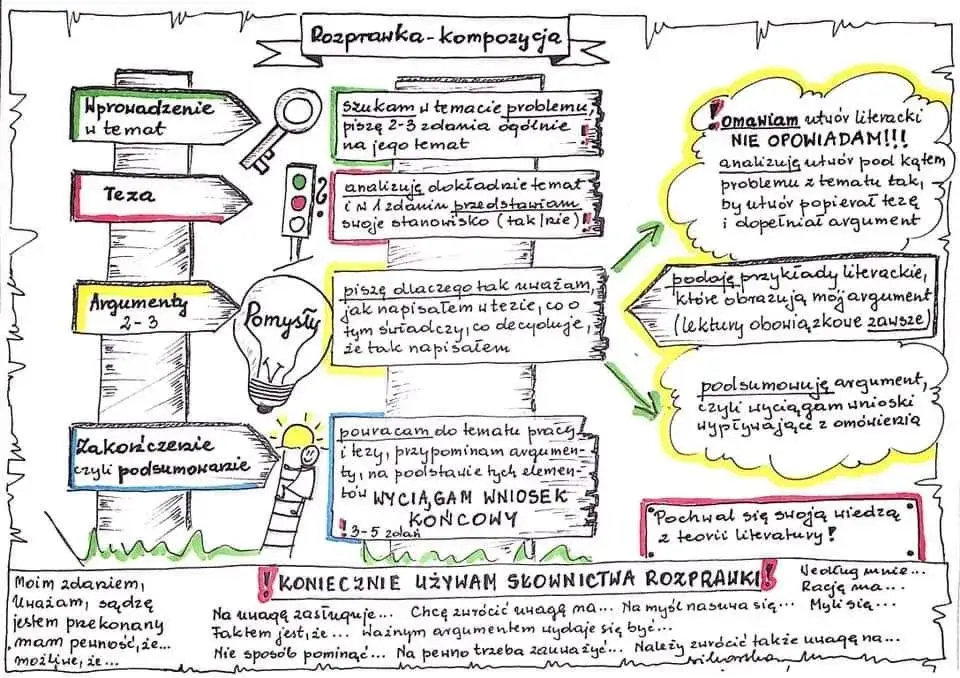 Rozprawka - kompozycja
Wprowadzenie
w temat
szukam w temacie problemu,
piszę 2-3 zdania ogólnie
na jego temat !
Teza
?
analizuję dokładnie temat
i w 1 zdaniu przedstawiam
swoje stanowisko (tak/nie) !
Argumenty
2-3
Pomysły
piszę dlaczego tak uważam,
jak napisałem w tezie, co o
tym świadczy, co decyduje,
że tak napisałem
! omawiam utwór literacki
NIE OPOWIADAM!!!
analizuję utwór pod kątem
problemu z tematu tak,
by utwór popierał tezę
i dopełniał argument
podaję przykłady literackie,
które obrazują mój argument
(lektury obowiązkowe zawsze)
podsumowuję argument,
czyli wyciągam wnioski
wypływające z omówienia
Zakończenie
czyli podsumowanie
powracam do tematu pracy
i tezy, przypominam argumen-
ty, na podstawie tych elemen-
tów WYCIĄGAM WNIOSEK
KOŃCOWY
! 3-5 zdań
Pochwal się swoją wiedzą
z teorii literatury!
! KONIECZNIE UŻYWAM SŁOWNICTWA ROZPRAWKI !
Moim zdaniem,
Uważam, sądzę
jestem przekonany
mam pewność, że...
możliwe, że...
Na uwagę zasługuje... Chcę zwrócić uwagę na... Na myśl nasuwa się...
Faktem jest, że... ważnym argumentem wydaje się być...
Nie sposób pominąć... Na pewno trzeba zauważyć... Należy zwrócić także uwagę na...
Według mnie...
Rację ma...
Myli się...